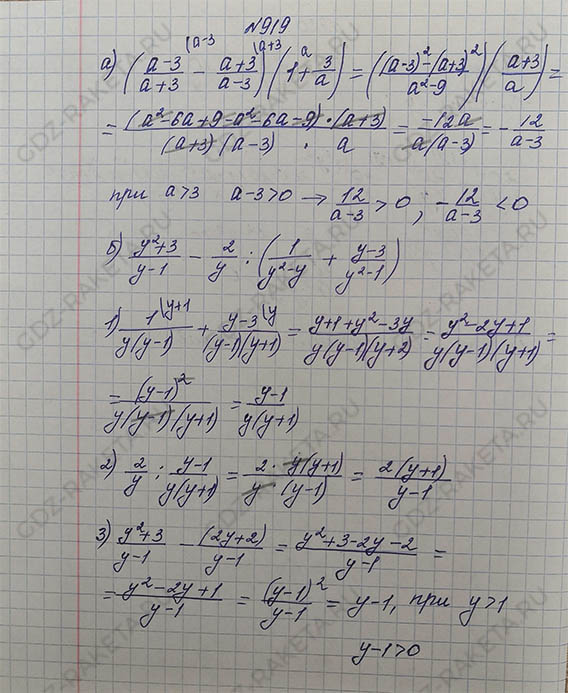 №919
а) ((a-3)/(a+3) \a-3 - (a+3)/(a-3) \a+3) (1 \a + 3/a) = (((a-3)² - (a+3)²)/(a²-9)) ((a+3)/a) =
= ((a²-6a+9-a²-6a-9)·(a+3))/((a+3)(a-3)·a) = -12a/(a(a-3)) = - 12/(a-3)
при a>3 a-3>0 → 12/(a-3) > 0; - 12/(a-3) < 0
б) (y²+3)/(y-1) - 2/y : (1/(y²-y) + (y-3)/(y²-1))
1) 1 \y+1/(y(y-1)) + y-3 \y/((y-1)(y+1)) = (y+1+y²-3y)/(y(y-1)(y+2)) = (y²-2y+1)/(y(y-1)(y+1)) =
= (y-1)²/(y(y-1)(y+1)) = (y-1)/(y(y+1))
2) 2/y : (y-1)/(y(y+1)) = (2·y(y+1))/(y(y-1)) = 2(y+1)/(y-1)
3) (y²+3)/(y-1) - (2y+2)/(y-1) = (y²+3-2y-2)/(y-1) =
= (y²-2y+1)/(y-1) = (y-1)²/(y-1) = y-1, при y>1
y-1>0
GDZ-RAKETA.RU